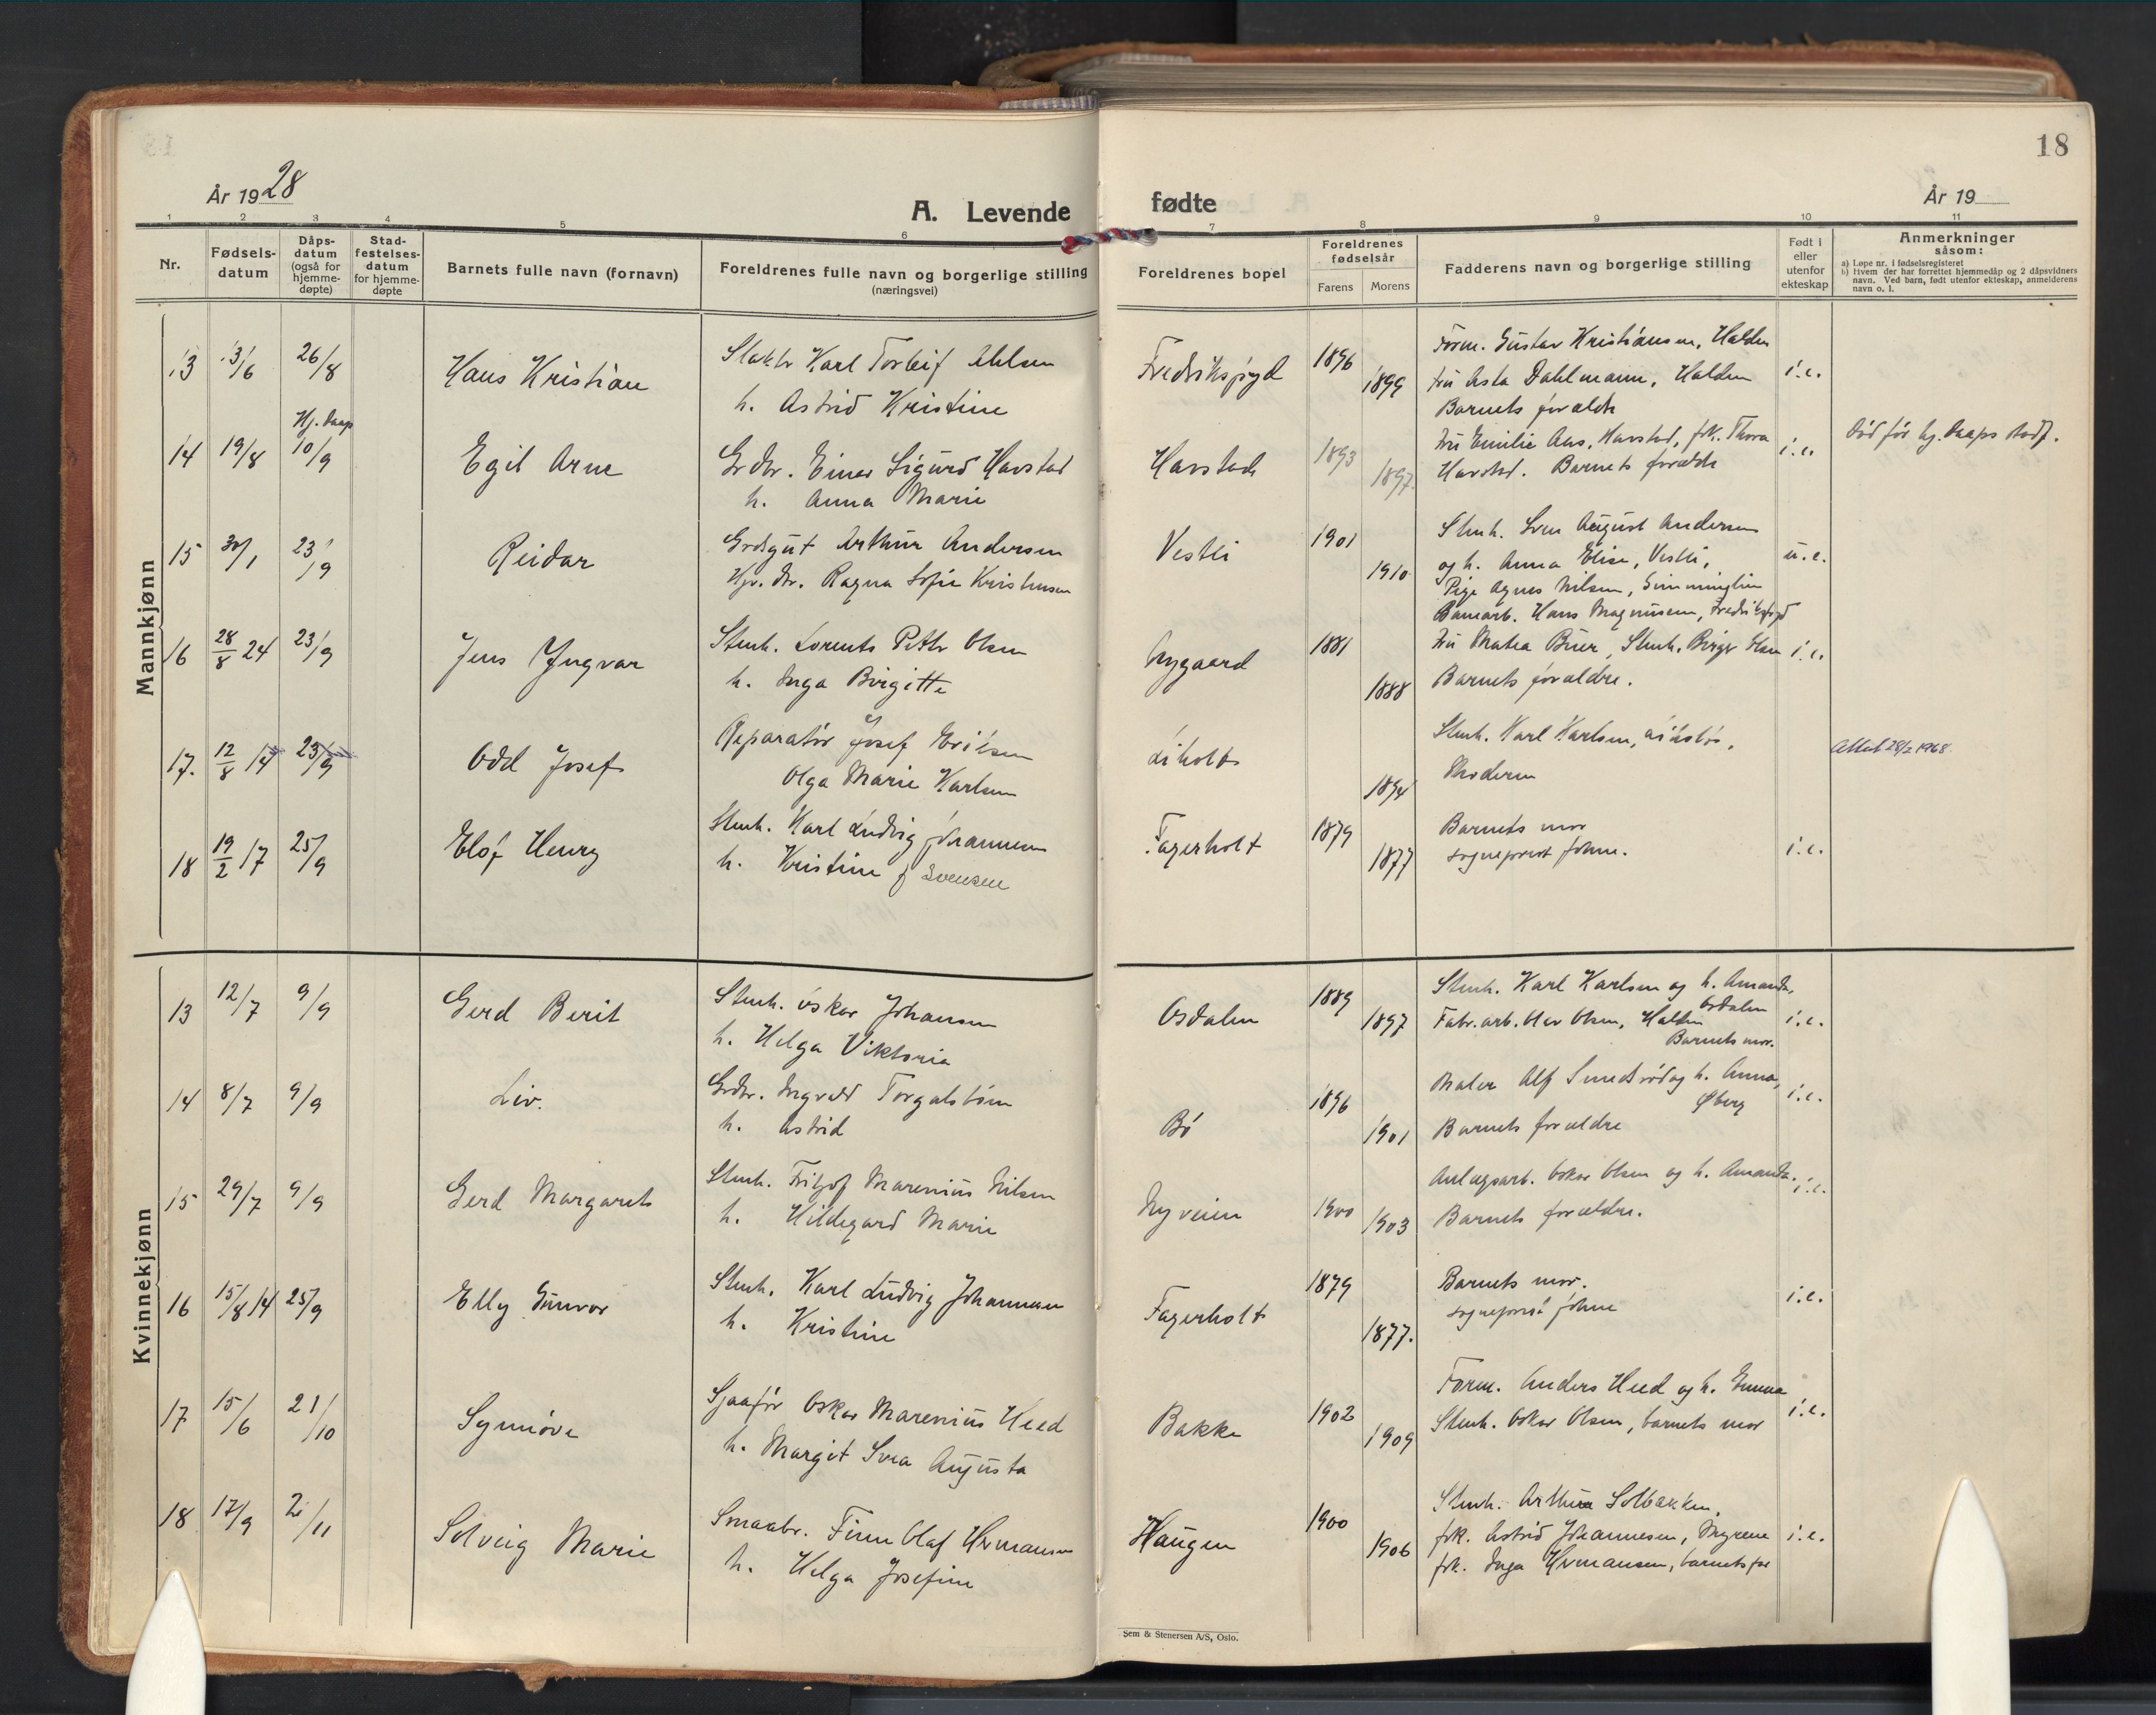 18
År 1928
A. Levende
fødte
År 19
1 2 3 4 5 6 7 8 9 10 11
Nr.
Fødsels-
datum
Dåps-
datum
(også for
hjemme-
døpte)
Stad-
festelses-
datum
for hjemme-
døpte
Barnets fulle navn (fornavn)
Foreldrenes fulle navn og borgerlige stilling
(næringsvei)
Foreldrenes bopel
Foreldrenes
fødselsår
Farens Morens
Fadderens navn og borgerlige stilling
Født i
eller
utenfor
ekteskap
Anmerkninger
såsom:
a) Løpe nr. i fødselsregisteret
b) Hvem der har forrettet hjemmedåp og 2 dåpsvidners
navn. Ved barn, født utenfor ekteskap, anmelderens
navn o. l.
Mannkjønn
13 13/6 26/8 Hans Kristian
Karl Torleif
h. Astrid Kristine
1896
1899
Form. Gustav Kristiansen, Halden
fru Asta Dahlmann, Halden
Barnets forældre
i.e.
14 19/8 Hj. daap 10/9 Egil Arne
Grdbr. Einar Sigurd Havstad
h. Anna Marie
Havstad
1893
1897.
fru Emilie Aas, Havstad, frk. Thora
Havstad. Barnets forældre
i.e.
Død før hj. daaps stadf.
15 30/1 23/9 Reidar
Grdsgut Arthur Andersen
Hjv. dtr. Ragna Sofie Kristensen
Vestli
1901
1910
Stenh. Sven August Andersen
og h. Anna Elise, Vestli,
Pige Agnes Nilsen,
Banearb. Hans Magnussen,
u.e.
16 28/8 24 23/9 Jens Yngvar
Stenh. Lorents Petter Olsen
h. Inga Birgitte
Nygaard
1881
1888
fru Matea Buer, Stenh. Birger Olsen
Barnets forældre.
i.e.
17. 12/8 14 23/9 Odd Josef
Reparatør Josef Eriksen
Olga Marie Karlsen
Liholt
1894
Stenh. Karl Karlsen,
Moderen
Attest 28/2 1968.
18 19/2 17 25/9 Elof Henry
Stenh. Karl Ludvig Johannesen
h. Kristine f Svensen
Fagerholt
1879
1877
Barnets mor
sogneprest Johne.
i.e.
Kvinnekjønn
13 12/7 9/9 Gerd Berit
Stenh. Oskar Johansen
h. Helga Viktoria
Osdalen
1889
1897
Stenh. Karl Karlsen og h. Amanda,
Osdalen
Fabr.arb. Olav Olsen, Halden
Barnets mor.
i.e.
14 8/7 9/9 Liv.
Grdbr. Ingvald Torgalsbøen
h. Astrid
Bø
1896
1901
Maler Alf Smedsrød og h. Anna,
Øberg
Barnets forældre
i.e.
15 29/7 9/9 Gerd Margareth
Stenh. Fritjof Marenius Nilsen
h. Hildegard Marie
Nyveien
1900
1903
Anlægsarb. Oskar Olsen og h. Amanda.
Barnets forældre.
i.e.
16 15/8 14 25/9 Elly Gunvor
Stenh. Karl Ludvig Johannesen
h. Kristine
Fagerholt
1879
1877.
Barnets mor.
sogneprest Johne
i.e.
17 15/6 21/10 Synnøve
Sjaafør Oskar Marenius Heed
h. Margit Svea Augusta
Bakke
1902
1909
Form. Anders Heed og h. Emma
Stenh. Oskar Olsen, barnets mor
i.e.
18 17/9 2/11 Solveig Marie
Smaabr. Finn Olaf Hermansen
h. Helga Josefine
Haugen
1900
1906
Stenh. Arthur Solbakken,
frk. Astrid Johannesen, Myrene
frk. Inga Hermansen, barnets far
i.e.
Sem & Stenersen A/S, Oslo.